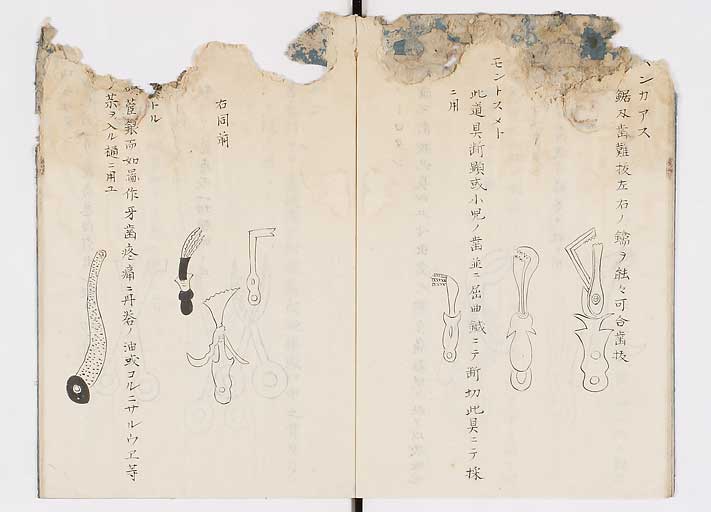 ンカアス
鋸刄齒難抜左右ノ鐺ヲ能々可合齒抜
モントスメト
此道具断頭或小児ノ齒並ニ屈曲鍼ニテ断切此具ニテ採
ニ用
右同前
トル
管銀而如圖作牙齒疼痛ニ丹礬ノ油或コルニサルウヱ等
茶ヲ入ル樋ニ用ユ